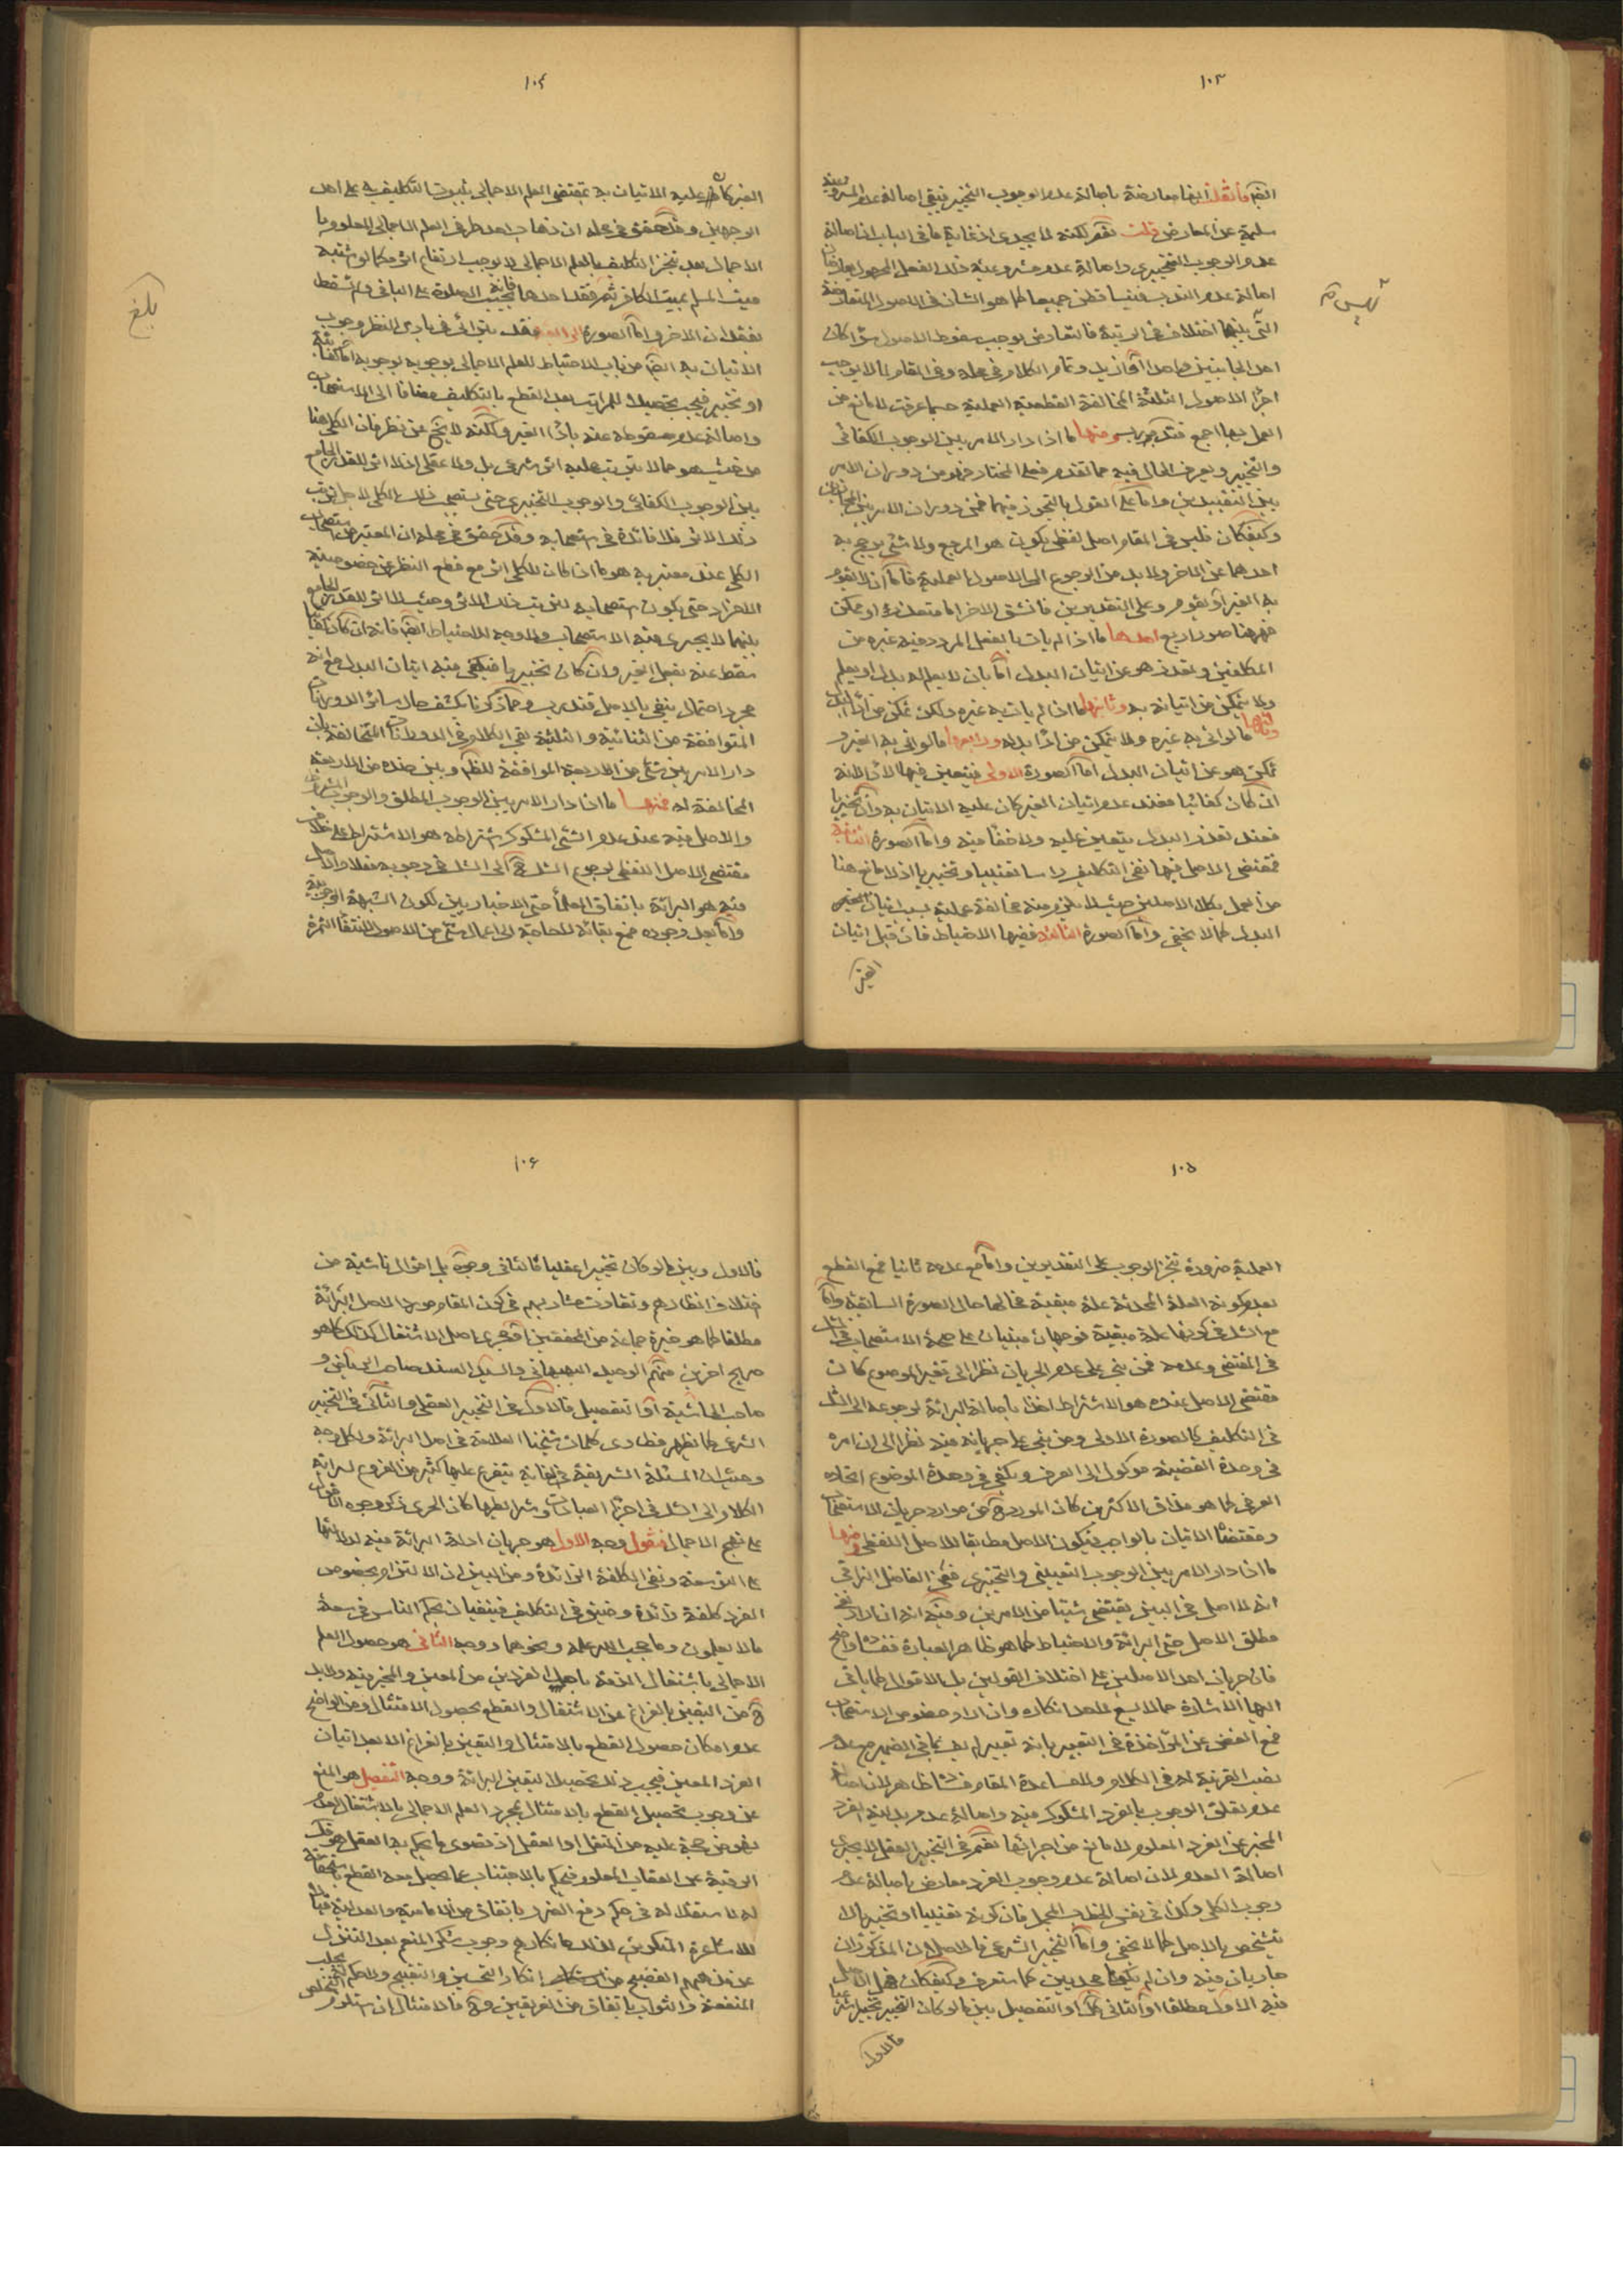 ١٠٣
ايضا معارضة باصالة عدم الوجوب التخييري فيبقى اصالة عدم
سليمة عن المعارض قلت نعم لكنه لا يجدى اذ غاية ما فى الباب ان اصالة
عدم الوجوب التخييرى واصالة عدم مشروعية ذلك الفعل
اصالة عدم الندب فيتساقطن جميعا كما هو الشان فى الاصول المتعارضة
التى بينها اختلاف فى الرتبة فالتعارض يوجب سقوط الاصول سواء كان
احد الجانبين واحدا او ازيد وتمام الكلام فى محله وفى المقام لما لا يوجب
اجراء الاصول الثلثة المخالفة القطعية العملية حسبما عرفت لا مانع من
العمل بها اجمع فتدبر ومنها ما اذا دار الامر بين الوجوب الكفائى
والتخيير ويعرف الحال فيه مما تقدم فعلى المختار فهو من دوران الامر
بين التقييدين واما على القول بالتجوز فيهما فمن دوران الامر بين المجازين
وكيف كان فليس فى المقام اصل لفظى يكون هو المرجع ولا شئ يرجح به
احدهما عن الاخر ولا بد من الرجوع الى الاصول العملية فاما ان لا يقوم
به الغير او يقوم وعلى التقديرين فالشق الاخر اما متعذر او ممكن
فههنا صور اربع احدها ما اذا لم يات بالفعل المردد فيه غيره من
المكلفين وتعذر هو عن اتيان البدل اما بان لا يعلم له بدل او يعلم
ولا يتمكن من اتيانه به وثانيها ما اذا لم يات به غيره ولكن تمكن من
وثالثها ما لو اتى به غيره ولا يتمكن من اداء بدله ورابعها ما لو اتى به الغير و
تمكن هو عن اتيان البدل اما الصورة الاولى فيتعين فيها الاتيان لانه
ان كان كفائيا فعند عدم اتيان الغير كان عليه الاتيان به وان تخييريا
فعند تعذر البدل يتعين عليه ولا خفاء فيه واما الصورة الثانية
فمقتضى الاصل فيها نفى التكليف راسا تعيينيا وتخييريا اذ لا مانع هنا
من العمل بكلا الاصلين حيث لا يلزم منه مخالفة عملية بسبب اتيان الغير
البدل كما لا يخفى واما الصورة الثالثة ففيها الاحتياط فان قبل اتيان
الغير
١٠٤
الغير كان عليه الاتيان به بمقتضى العلم الاجمالى بثبوت التكليف به على احد
الوجهين وقد حقق فى محله ان ذهاب احد طرفى العلم الاجمالى المعلوم با
الاجمال بعد تنجز التكليف بالعلم الاجمالى لا يوجب ارتفاع اثره كما لو اشتبه
ميت المسلم بميت الكافر ثم فقد احدهما فانه يجب الصلوة على الباقى ولم تسقط
بفقدان الاخر واما الصورة الرابعة فقد يترائى فى بادى النظر وجوب
الاتيان به ايضا من باب الاحتياط للعلم الاجمالى بوجوبه
او تخيير فيجب تحصيلا للبرائة بعد القطع بالتكليف مضافا الى الاستصحاب
واصالة عدم سقوطه عنه باداء الغير ولكنه لا يخلو عن نظر فان الكلى هنا
من حيث هو مما لا يترتب عليه اثر شرعى بل ولا عقلى اذ لا اثر للقدر الجامع
بين الوجوب الكفائى والوجوب التخييرى حتى يستصحب ذلك الكلى لاجل ترتب
ذلك الاثر فلا فائدة فى استصحابه وقد حقق فى محله ان المعتبر من استصحاب
الكلى عند معتبريه هو ما اذا كان للكلى اثر مع قطع النظر عن خصوصية
الافراد حتى يكون استصحابه لترتيب ذلك الاثر وحيث لا اثر للقدر الجامع
بينهما لا يجرى فيه الاستصحاب ولا وجه للاحتياط ايضا فانه ان كان كفائيا
سقط عنه بفعل الغير وان كان تخييريا فيكفى فيه اتيان البدل مع انه
مجرد احتمال ينفى بالاصل فتدبر ومما ذكرنا يكشف حال سائر الدورانات
المتوافقة من الثنائية والثلثية بقى الكلام فى الدورانات المتخالفة بان
دار الامر بين شئ من الاربعة الموافقة للظاهر وبين ضده من الاربعة
المخالفة له فمنها ما اذا دار الامر بين الوجوب المطلق والوجوب المشروط
والاصل فيه عند عدم الشئ المشكوك اشتراطه هو الاشتراط على خلاف
مقتضى الاصل اللفظى لرجوع الشك ح الى الشك فى وجوبه فعلا والاصل
فيه هو البرائة باتفاق العلماء حتى الاخباريين لكون الشبهة الوجوبية
واما بعد وجوده فمع بقائه لا حاجة الى اعمال شئ من الاصول لانتفاء الثمرة
بلغ
١٠٥
العملية ضرورة تنجز الوجوب على التقديرين واما مع عدمه ثانيا فمع القطع
بعدم كونه العلة المحدثة علة مبقية فحالها حال الصورة السابقة واما
مع الشك فى كونها علة مبقية فوجهان مبنيان على حجية الاستصحاب فى الشك
فى المقتضى وعدمه فمن بنى على عدم الجريان نظرا الى تغير الموضوع كان
مقتضى الاصل عنده هو الاشتراط اخذا باصالة البرائة لرجوعه الى الشك
فى التكليف كالصورة الاولى ومن بنى على جريانه فيه نظرا الى ان امره
فى وحدة القضية موكول الى العرف ويكفى فى وحدة الموضوع اتحاده
العرفى كما هو مذاق الاكثرين كان المورد ح من موارد جريان الاستصحاب
ومقتضاه الاتيان بالواجب فيكون الاصل مطابقا للاصل اللفظى ومنها
ما اذا دار الامر بين الوجوب التعيينى والتخييرى فعن الفاضل النراقى
انه لا اصل فى البين يقتضى شيئا من الامرين وفيه انه ان اراد نفى
مطلق الاصل حتى البرائة والاحتياط كما هو ظاهر العبارة ففساده واضح
فان جريان احد الاصلين على اختلاف القولين بل الاقوال كما ياتى
اليها الاشارة مما لا يسع لاحد انكاره وان اراد خصوص الاستصحاب
فمع الغض عن المؤاخذة فى التعبير بانه تعبير لم يف بما فى الضمير مع عدم
نصب القرينة له فى الكلام ولا مساعدة المقام ففساده ظاهر لان اصالة
عدم تعلق الوجوب بالفرد المشكوك فيه واصالة عدم بدلية الفرد
المخير عن الفرد المعلوم لا مانع من اجرائها نعم فى التخيير العقلى لا يجرى
اصالة العدم لان اصالة عدم وجوب الفرد معارض باصالة عدم
وجوب الكلى وكذا فى نفس الخطاب المجمل فان كونه تعيينيا او تخييريا لا
يتشخص بالاصل كما لا يخفى واما التخيير الشرعى فالاصلان المذكوران
جاريان فيه وان لم يكونا مجديين كما ستعرف وكيف كان فهل الاصل
فيه الاول مطلقا او الثانى كك او التفصيل بين ما لو كان التخيير تخييرا شرعيا
فالاول
١٠٦
فالاول وبين ما لو كان تخييرا عقليا فالثانى وجوه بل اقوال ناشئة من
اختلاف انظارهم وتفاوت مشاربهم فى كون المقام مورد الاصل البرائة
مطلقا كما هو خيرة جماعة من المحققين او مجرى اصل الاشتغال كذلك كما هو
صريح اخرين منهم الوحيد البهبهانى والسيد السند صاحب الرياض و
صاحب الحاشية او التفصيل فالاول فى التخيير العقلى والثانى فى التخيير
الشرعى كما يظهر من مطاوى كلمات شيخنا العلامة فى اصل البرائة ولكل وجه
وحيث ان المسئلة الشريفة فى الغاية يتفرع عليها كثير من الفروع لسراية
الكلام الى الشك فى اجزاء العبادات وشرائطها كان الحرى ذكر وجوه الاقوال
على نهج الاجمال فنقول وجه الاول هو جريان ادلة البرائة فيه لدلالتها
على التوسعة ونفى الكلفة الزائدة ومن البين ان الالتزام بخصوص
الفرد كلفة زائدة وضيق فى التكليف فينفيان بحكم الناس فى سعة
ما لا يعلمون وما حجب الله علمه ونحوهما ووجه الثانى هو حصول العلم
الاجمالى باشتغال الذمة باحد الفردين من المعين والمخير فيه ولا بد
ح من اليقين بالفراغ عن الاشتغال والقطع بحصول الامتثال ومن الواضح
عدم امكان حصول القطع بالامتثال واليقين بالفراغ الا بعد اتيان
الفرد المعين فيجب ذلك تحصيلا ليقين البرائة ووجه التفصيل هو المنع
عن وجوب تحصيل القطع بالامتثال بمجرد العلم الاجمالى بالاشتغال لعدم
نهوض حجة عليه من النقل او العقل اذ قصوى ما يحكم به العقل هو فك
الرقبة عن العقاب المعلوم فيحكم بالاجتناب عما يحصل معه القطع باستحقاقه
له لاستقلاله فى حكم دفع الضرر باتفاق من الامامية والعدلية
للاشاعرة المنكرين لذلك كانكارهم وجوب شكر المنعم بعد التنزل
عن مذهبهم الفضيح من انكار التحسين والتقبيح ولا حكم له بجلب
المنفعة والثواب باتفاق من الفريقين وح فالامتثال ان استلزم التخلص